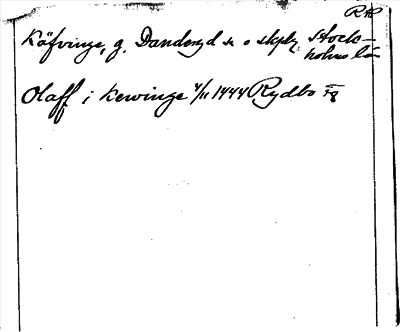 RP
Käfvinge, g. Danderyd sn o skply Stock-
holms län
Olaff i Kewinge 4/11 1444 Rydbo